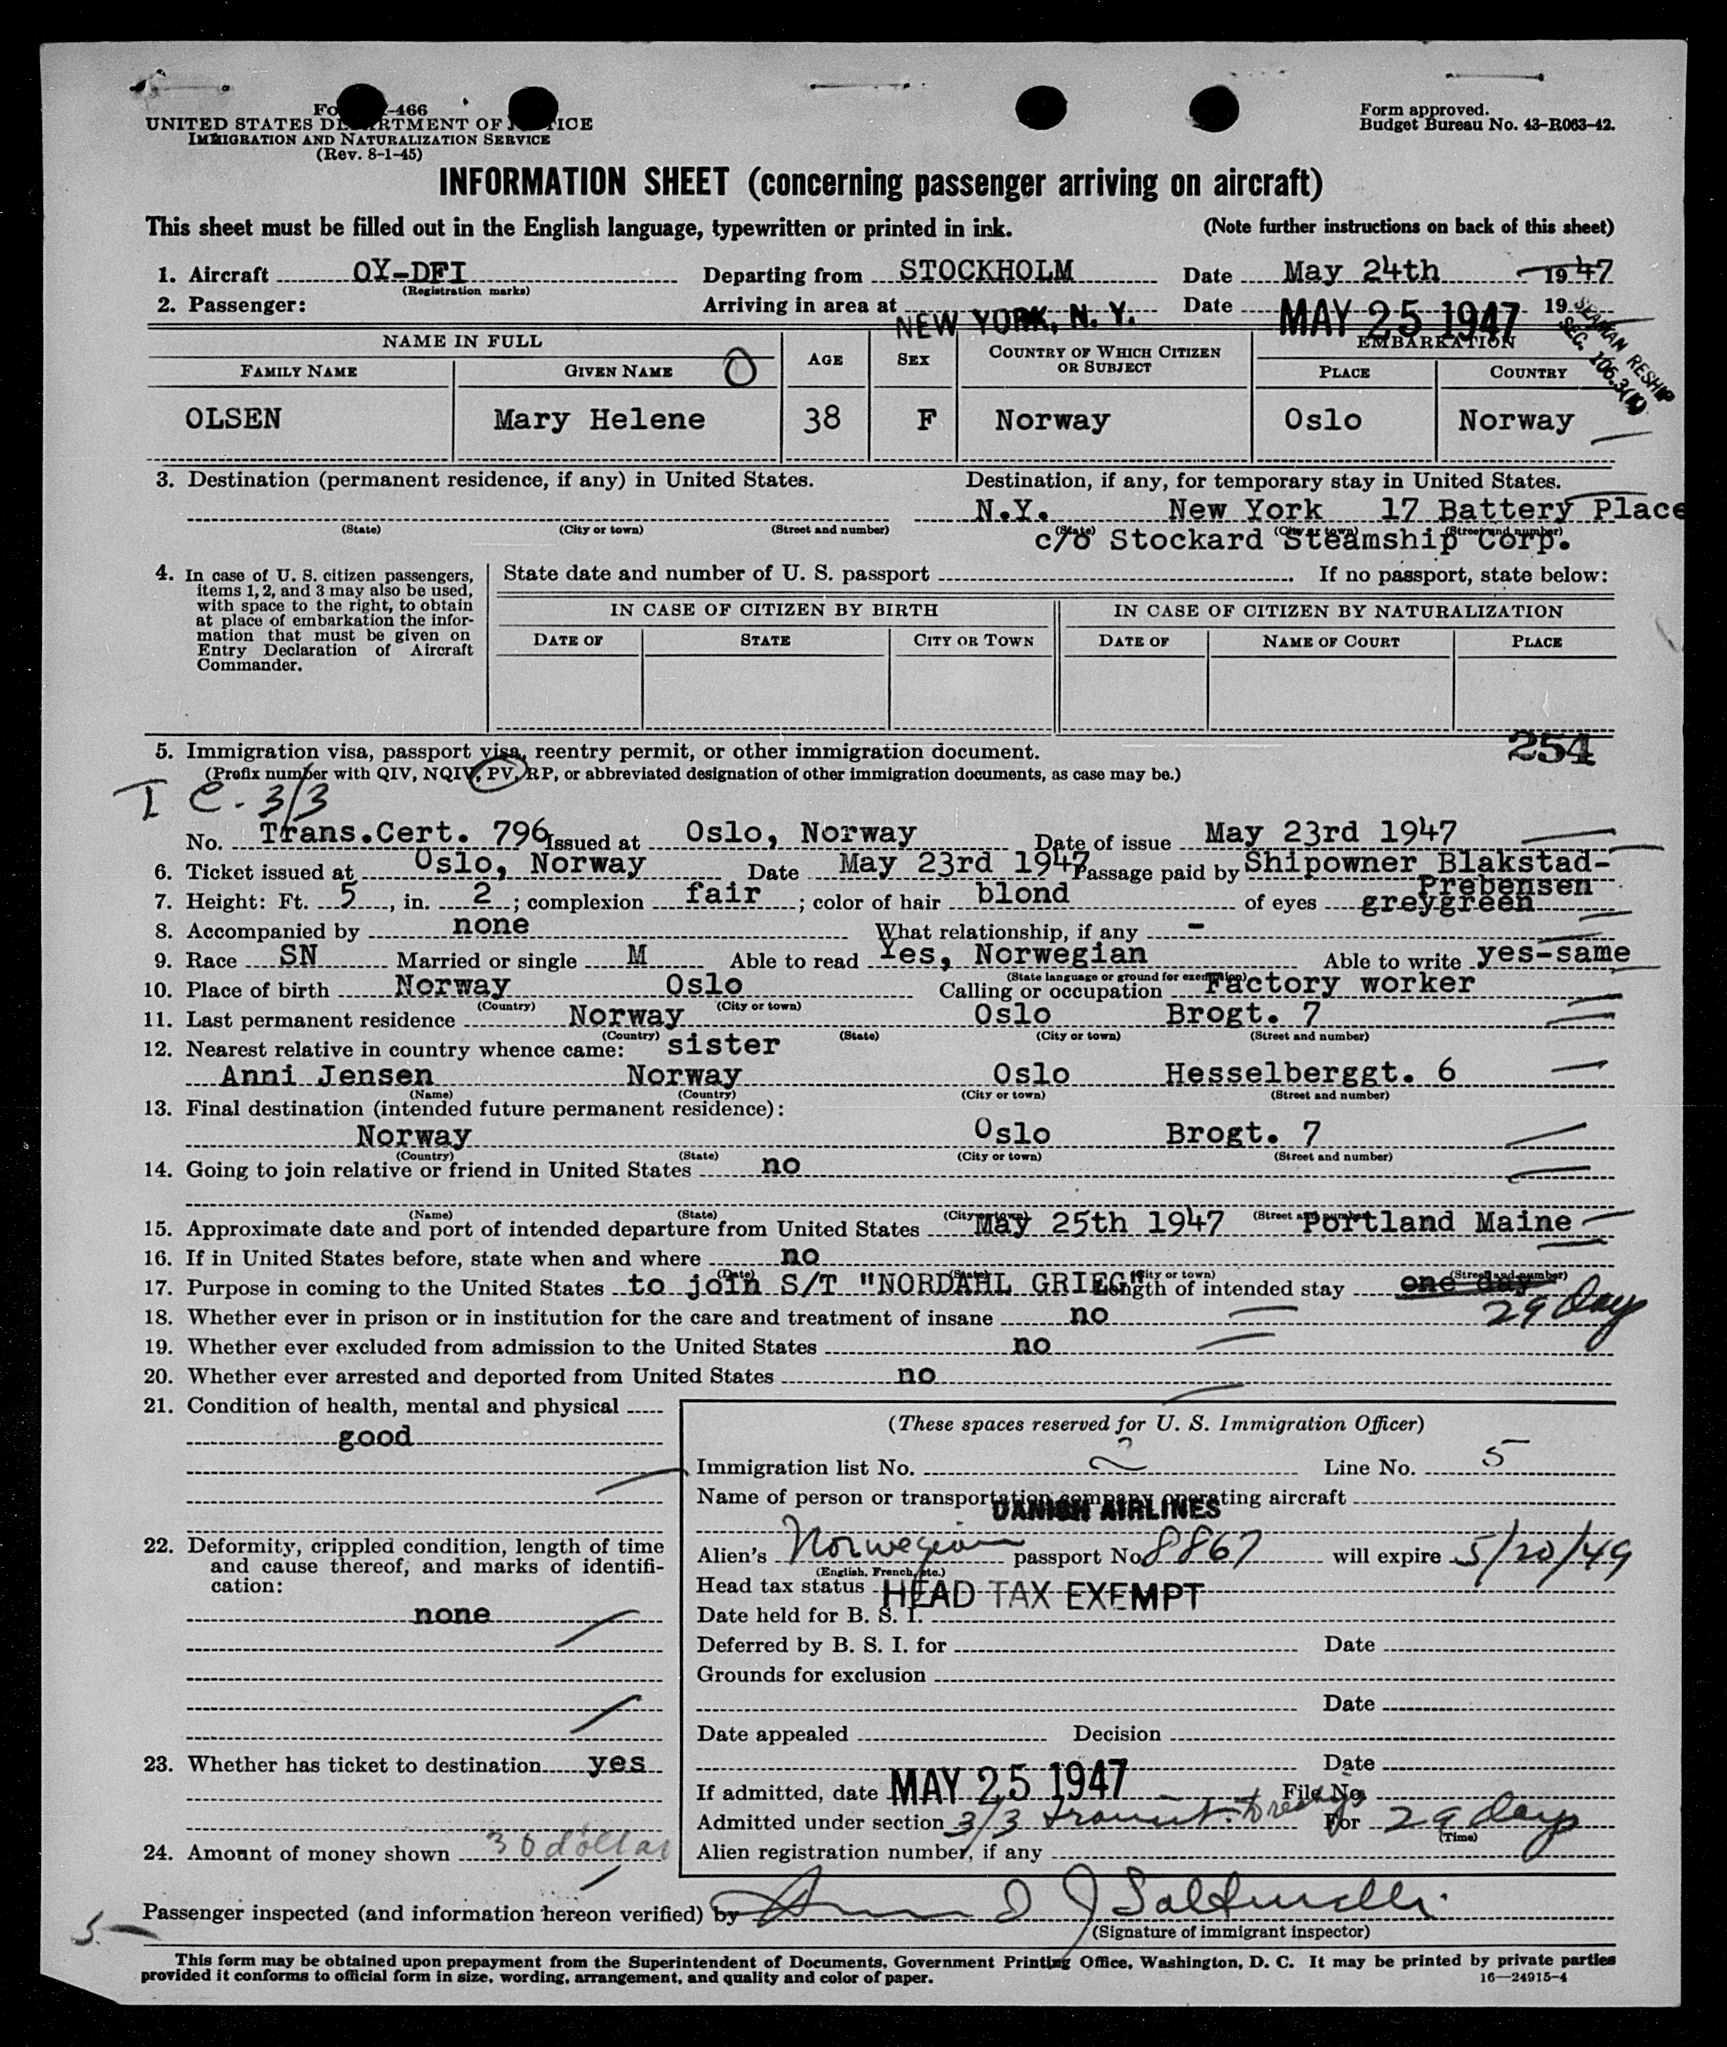 Fo -466
UNITED STATES DEPARTMENT OF JUSTICE
IMMIGRATION AND NATURALIZATION SERVICE
(Rev. 8-1-45)
Form approved.
Budget Bureau No. 43-R063-42.
INFORMATION SHEET (concerning passenger arriving on aircraft)
This sheet must be filled out in the English language, typewritten or printed in ink. (Note further instructions on back of this sheet)
1. Aircraft OY-DFI Departing from STOCKHOLM Date May 24th 1947
(Registration marks)
2. Passenger: Arriving in area at NEW YORK, N. Y. Date MAY 25 1947 19
SEAMAN RESHIP
SEC. 106.3(k)
NAME IN FULL AGE SEX COUNTRY OF WHICH CITIZEN OR SUBJECT EMBARKATION
FAMILY NAME GIVEN NAME O PLACE COUNTRY
OLSEN Mary Helene 38 F Norway Oslo Norway
3. Destination (permanent residence, if any) in United States. Destination, if any, for temporary stay in United States.
N.Y. New York 17 Battery Place
(State) (City or town) (Street and number) (State) (City or town) (Street and number)
c/o Stockard Steamship Corp.
4. In case of U. S. citizen passengers, items 1, 2, and 3 may also be used, with space to the right, to obtain at place of embarkation the information that must be given on Entry Declaration of Aircraft Commander.
State date and number of U. S. passport . If no passport, state below:
IN CASE OF CITIZEN BY BIRTH IN CASE OF CITIZEN BY NATURALIZATION
DATE OF STATE CITY OR TOWN DATE OF NAME OF COURT PLACE
254
5. Immigration visa, passport visa, reentry permit, or other immigration document.
(Prefix number with QIV, NQIV, PV, RP, or abbreviated designation of other immigration documents, as case may be.)
I C - 3/3
No. Trans.Cert. 796 Issued at Oslo, Norway Date of issue May 23rd 1947
6. Ticket issued at Oslo, Norway Date May 23rd 1947 Passage paid by Shipowner Blakstad-
Prebensen
7. Height: Ft. 5, in. 2; complexion fair; color of hair blond of eyes greygreen
8. Accompanied by none What relationship, if any -
9. Race SN Married or single M Able to read Yes, Norwegian Able to write yes-same
(State language or ground for exemption)
10. Place of birth Norway Oslo Calling or occupation Factory worker
(Country) (City or town)
11. Last permanent residence Norway Oslo Brogt. 7
(Country) (State) (City or town) (Street and number)
12. Nearest relative in country whence came: sister
Anni Jensen Norway Oslo Hesselberggt. 6
(Name) (Country) (City or town) (Street and number)
13. Final destination (intended future permanent residence):
Norway Oslo Brogt. 7
(Country) (State) (City or town) (Street and number)
14. Going to join relative or friend in United States no
(Name) (State) (City or town) (Street and number)
15. Approximate date and port of intended departure from United States May 25th 1947 Portland Maine
16. If in United States before, state when and where no
(Date) (State) (City or town) (Street and number)
17. Purpose in coming to the United States to join S/T "NORDAHL GRIEG" Length of intended stay one day
29 days
18. Whether ever in prison or in institution for the care and treatment of insane no
19. Whether ever excluded from admission to the United States no
20. Whether ever arrested and deported from United States no
21. Condition of health, mental and physical
good
22. Deformity, crippled condition, length of time and cause thereof, and marks of identification:
none
23. Whether has ticket to destination yes
24. Amount of money shown 30 dollar
(These spaces reserved for U. S. Immigration Officer)
Immigration list No. 2 Line No. 5
Name of person or transportation company operating aircraft
DANISH AIRLINES
Alien's Norwegian passport No. 8867 will expire 5/20/49
(English, French, etc.)
Head tax status HEAD TAX EXEMPT
Date held for B. S. I.
Deferred by B. S. I. for Date
Grounds for exclusion
Date
Date appealed Decision
Date
If admitted, date MAY 25 1947 File No.
Admitted under section 3/3 transit to reship For 29 days
(Time)
Alien registration number, if any
Passenger inspected (and information hereon verified) by
(Signature of immigrant inspector)
5
This form may be obtained upon prepayment from the Superintendent of Documents, Government Printing Office, Washington, D. C. It may be printed by private parties
provided it conforms to official form in size, wording, arrangement, and quality and color of paper. 16—24915-4